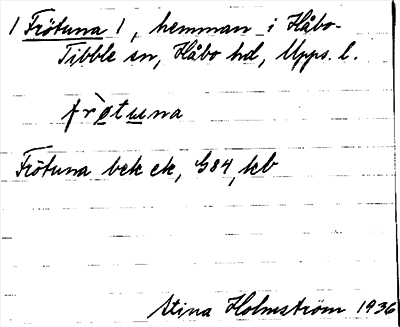 1 Frötuna 1, hemman i Håbo-
Tibble sn, Håbo hd, Upps. l.
frötuna
Frötuna bek ek, G84, kb
Stina Holmström 1936